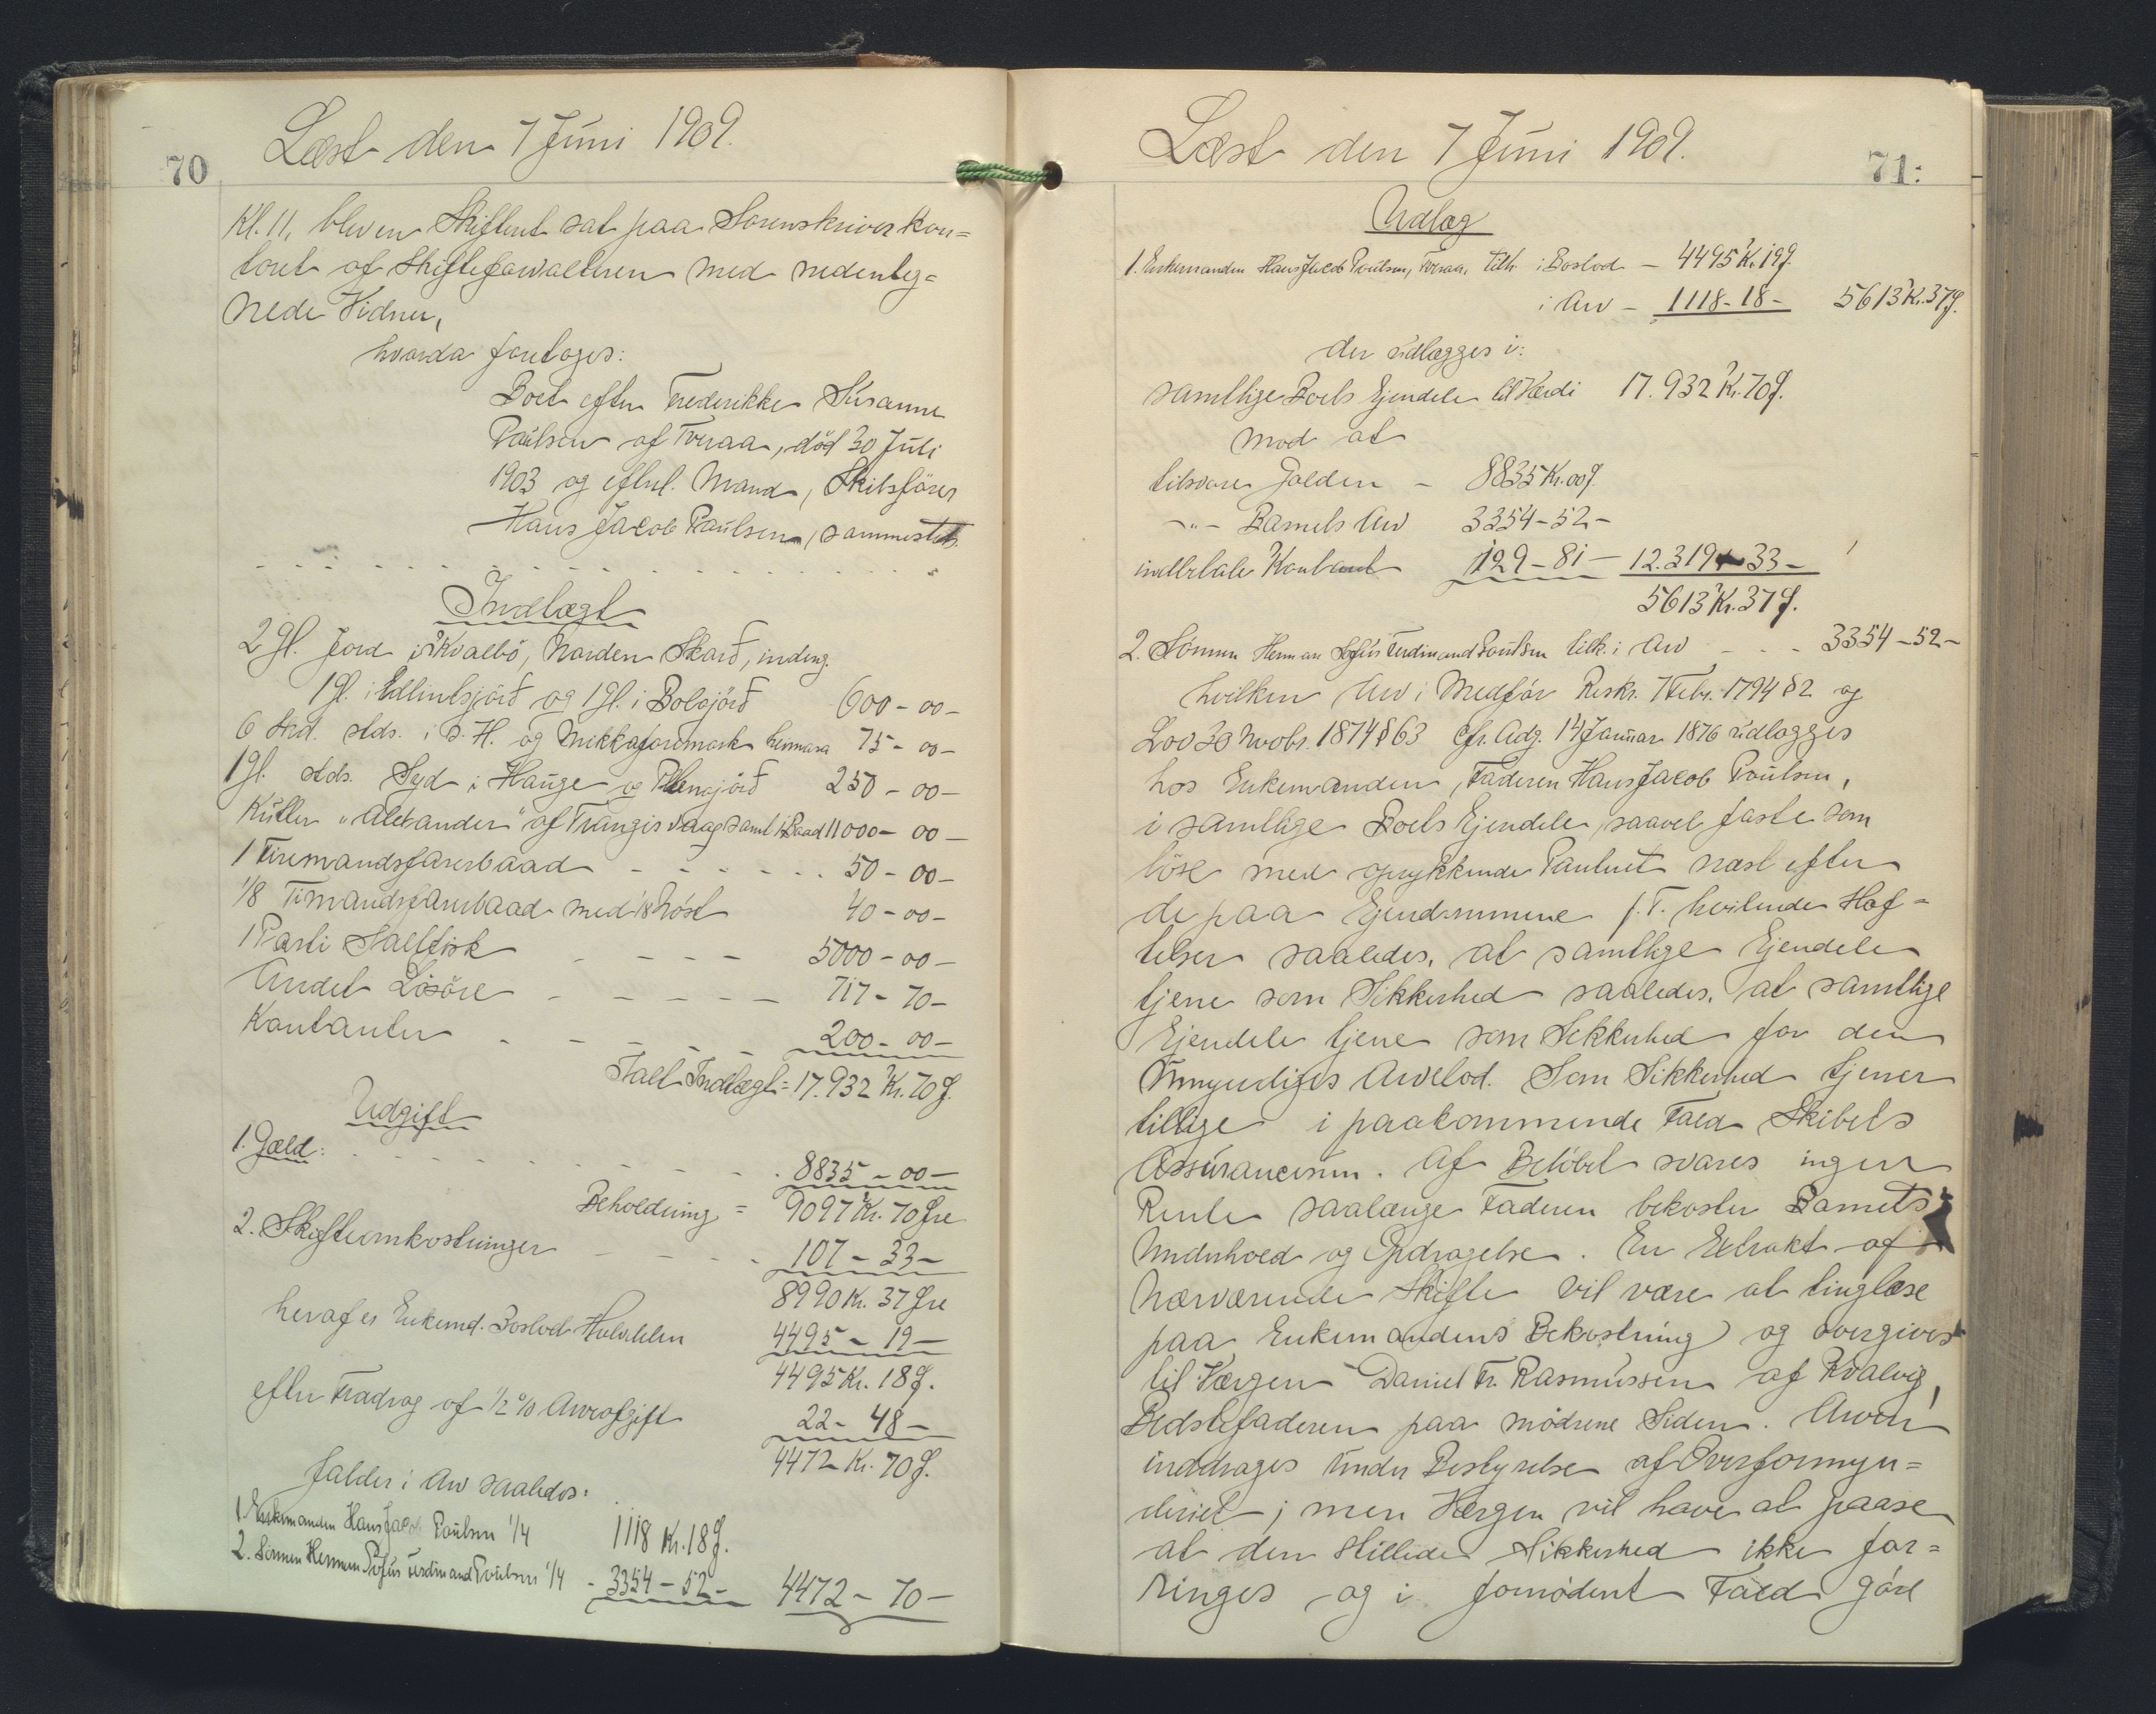 70
Læst den 7 Juni 1909.
Kl. 11, blev en Skifteret sat paa Sorenskriverkon=
toret af Skifteforvalteren med undenteg=
nede Vidner,
hvorda foretoges:
Boet efter Frederikke Susanne
Poulsen af Tveraa, död 30 Juli
1903 og efterl. Mand, Skibsförer
Hans Jacob Poulsen, sammesteds.
Indlægt
2 Gl. Jord i Kvalbö, Norden Skard, inding.
1 Gl. i Edlintsjörd og 1 Gl. i Bolajörd 600 - 00 -
6 Skd. stds. i D. H. og Mikkaforumark heimara 75 - 00 -
1 Gl. stds. Syd i Hauge og jörd 250 - 00 -
Kutter "Alexander" af Trangisvaag samt 1 Baad 11000 - 00 -
1 Firemandsfarerbaad - - - - - - 50 - 00 -
1/8 Timandsfarerbaad med 1/8 Nöst 40 - 00 -
1 Parti Saltfisk - - - - 5000 - 00 -
Andet Lösöre - - - - - 717 - 70 -
Kontanter - - - - - 200 - 00 -
Ialt Indlægt = 17.932 Kr. 70 Ø.
Udgift
1. Gæld: - - - - - - - 8835 - 00 -
Beholdning = 9097 Kr. 70 Øre
2. Skifteomkostninger - - - - 107 - 33 -
8990 Kr. 37 Øre
heraf er Enkemd. Boslod Halvdelen 4495 - 19 -
4495 Kr. 18 Ø.
efter Fradrag af 1/2 % Arveafgift 22 - 48 -
4472 Kr. 70 Ø.
falder i Arv saaledes:
1. Enkemanden Hans Jacob Poulsen 1/4 1118 Kr. 18 Ø.
2. Sönnen Herman Sofus Ferdinand Poulsen 1/4 - 3354 - 52 - 4472 - 70 -
Læst den 7 Juni 1909.
71:
Udlæg
1. Enkemanden Hans Jacob Poulsen, Tveraa, tilk. i Boslod - 4495 Kr. 19 Ø.
i Arv - 1118 - 18 - 5613 Kr. 37 Ø.
der udlægges i:
samtlige Boets Ejendele til Værdi 17.932 Kr. 70 Ø.
mod at
tilsvare Gælden - 8835 Kr. 00 Ø.
- " - Barnets Arv 3354 - 52 -
indbetale Kontant 129 - 81 - 12.319 - 33 -
5613 Kr. 37 Ø.
2. Sönnen Herman Sofus Ferdinand Poulsen tilk. i Arv - - - 3354 - 52 -
hvilken Arv i Medför Reskr. 7 Febr. 1794 § 2 og
Lov 30 Novbr. 1874 § 63 cfr. Adg. 14 Januar 1876 udlægges
hos Enkemanden, Faderen Hans Jacob Poulsen,
i samtlige Boets Ejendele, saavel faste som
löse med oprykkende Panteret næst efter
de paa Ejendommene p. T. hvilende Hæf=
telser saaledes, at samtlige Ejendele
tjene som Sikkerhed saaledes, at samtlige
Ejendele tjene som Sikkerhed for den
Umyndiges Arvelod. Som Sikkerhed tjener
tillige i paakommende Fald Skibets
Assurancesum. Af Belöbet svares ingen
Rente saalænge Faderen bekoster Barnets
Underhold og Opdragelse. En Extrakt af
nærværende Skifte vil være at tinglæse
paa Enkemandens Bekostning og overgives
til Værgen Daniel Fr. Rasmussen af Kvalvig,
Bedstefaderen paa mödrene Siden. Arven
inddrages under Bestyrelse af Overformyn=
deriet; men Værgen vil have at paase
at den stillede Sikkerhed ikke for=
ringes og i fornödent Fald göre